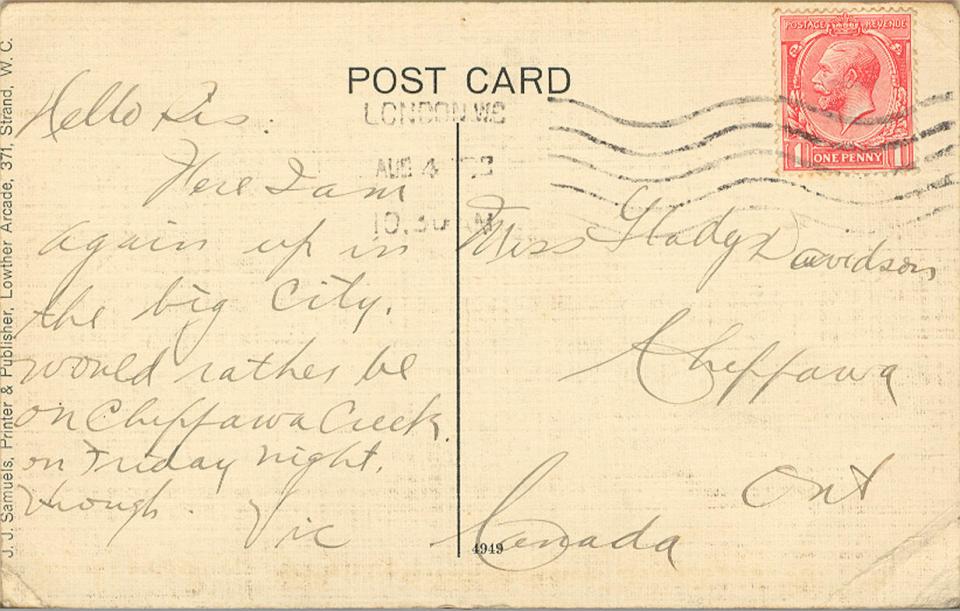 POST CARD
J. J. Samuels, Printer & Publisher, Lowther Arcade, 371, Strand, W. C.
POSTAGE REVENUE
1 ONE PENNY 1
LONDON. W.C
AUG 4
10.30 M
Hello Sis.
Here I am
again up in
the big City.
would rather be
on Chippawa Creek.
on Friday night.
though. Vic
Miss Gladys Davidson
Chippawa
Ont
Canada
4949